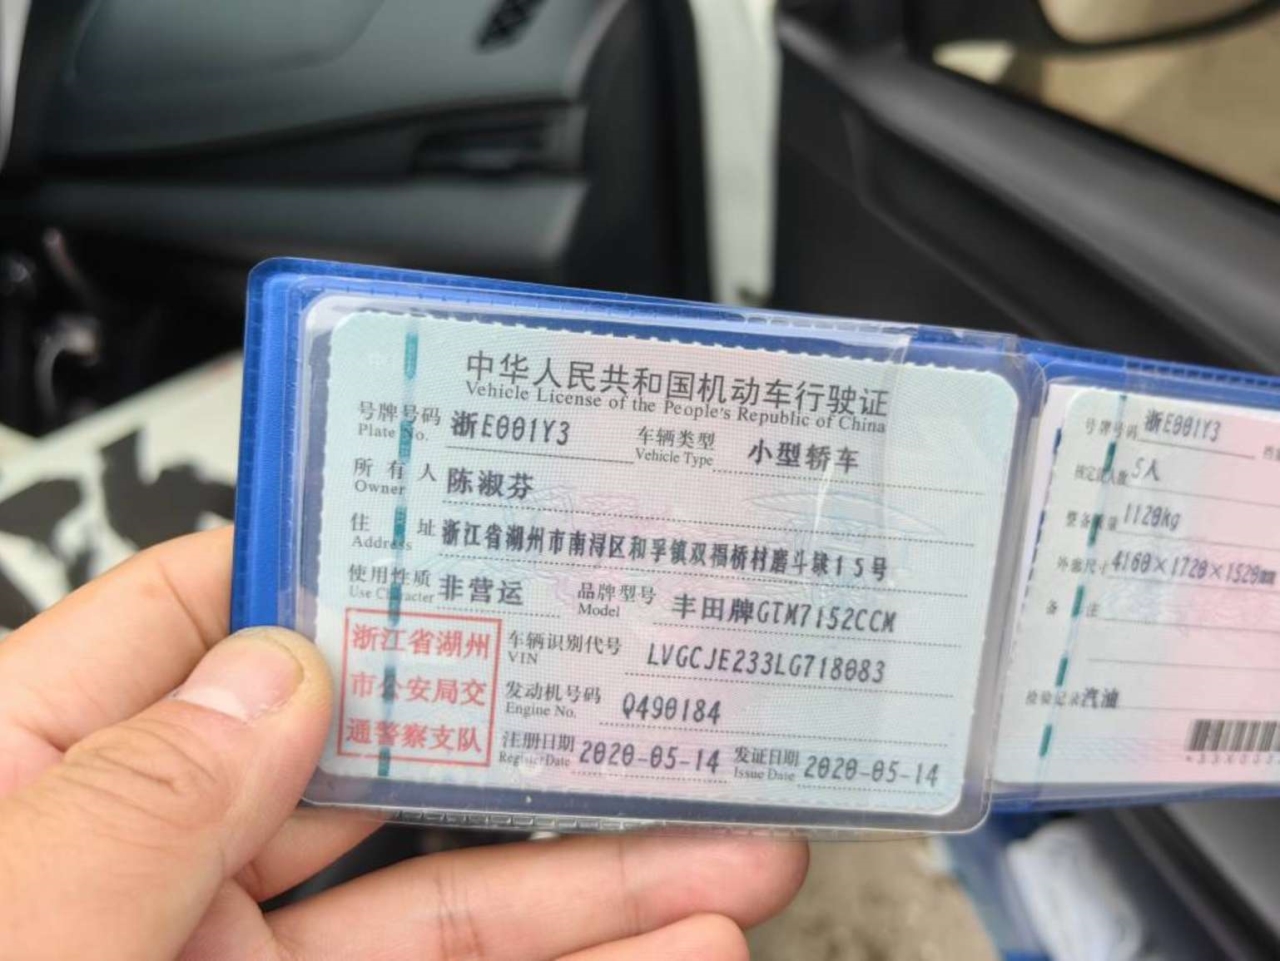 中华人民共和国机动车行驶证
Vehicle License of the People's Republic of China
号牌号码 浙E001Y3 车辆类型 小型轿车
Plate No. Vehicle Type
所有人 陈淑芬
Owner
住址 浙江省湖州市南浔区和孚镇双福桥村磨斗球15号
Address
使用性质 非营运 品牌型号 丰田牌GTM7152CCM
Use Character Model
浙江省湖州
市公安局交
通警察支队
车辆识别代号 LVGCJE233LG718083
VIN
发动机号码 Q490184
Engine No.
注册日期 2020-05-14 发证日期 2020-05-14
Register Date Issue Date
号牌号码 浙E001Y3
核定载人数 5人
整备质量 1120kg
外廓尺寸 4160×1720×1520mm
备注
检验记录 汽油